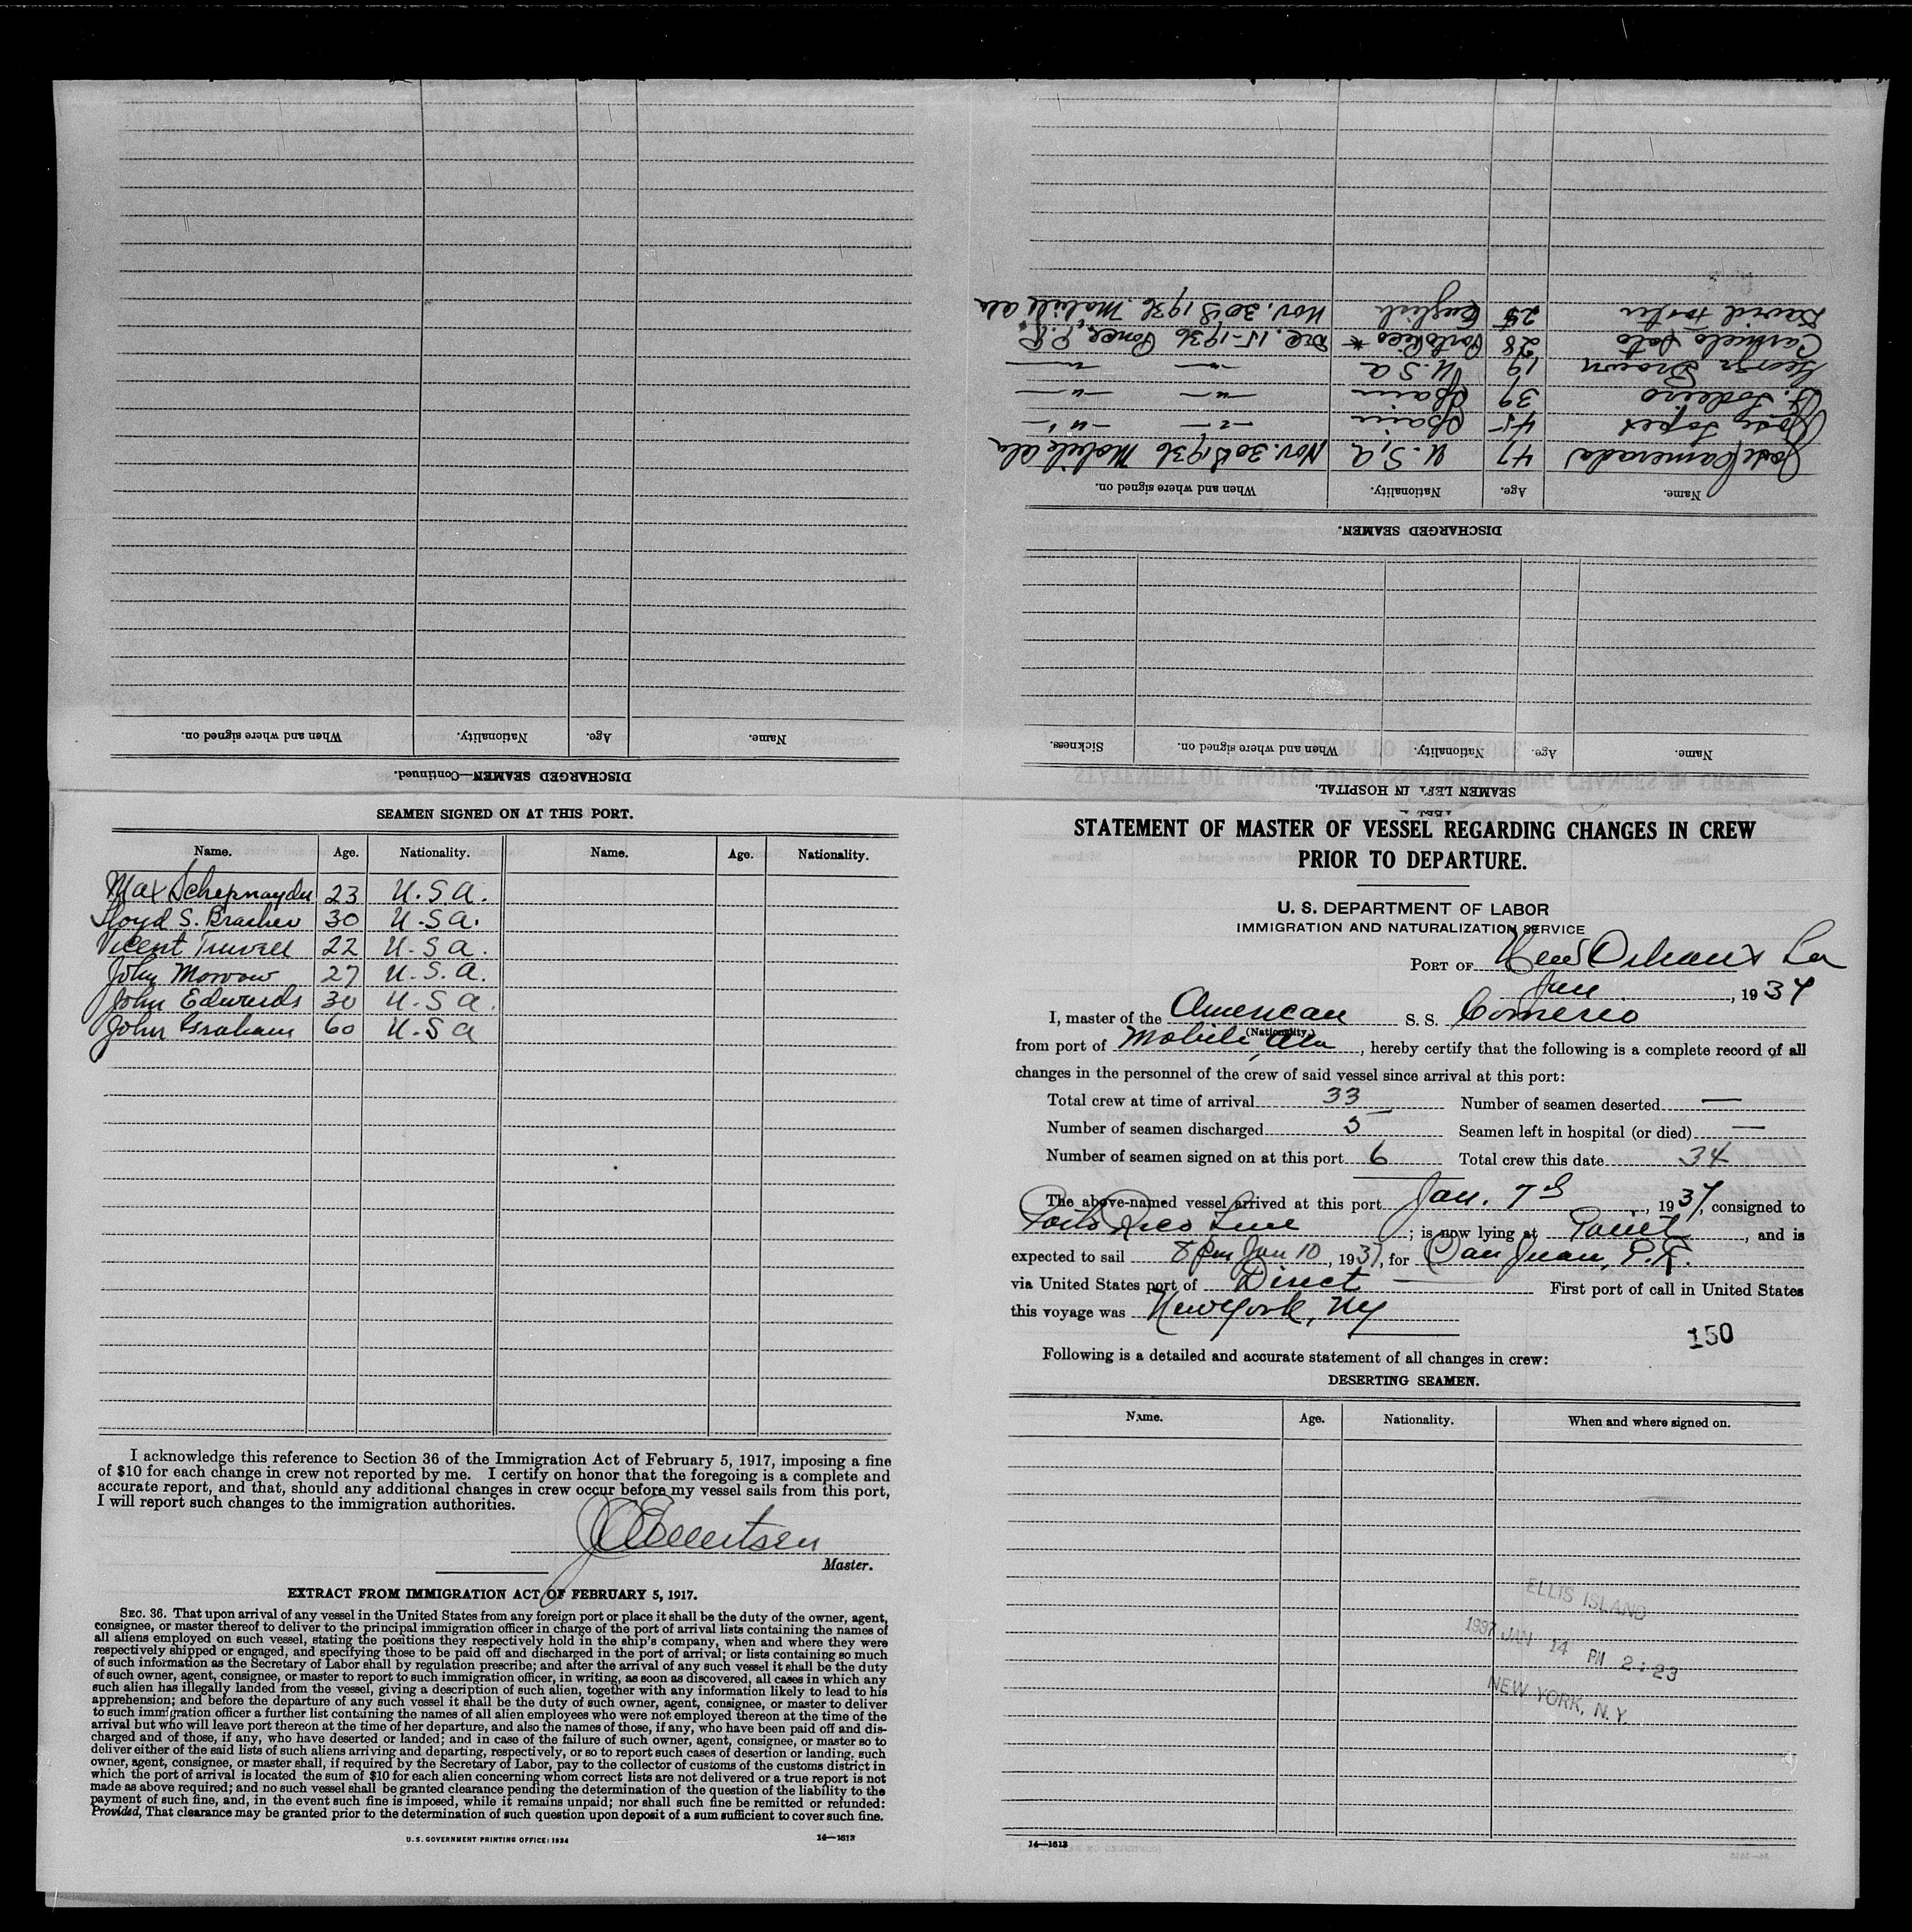 STATEMENT OF MASTER OF VESSEL REGARDING CHANGES IN CREW
PRIOR TO DEPARTURE.
U. S. DEPARTMENT OF LABOR
IMMIGRATION AND NATURALIZATION SERVICE
PORT OF New Orleans La
Jan , 1937
I, master of the American S. S. Comerio
(Nationality)
from port of Mobile, Ala , hereby certify that the following is a complete record of all
changes in the personnel of the crew of said vessel since arrival at this port:
Total crew at time of arrival 33 Number of seamen deserted —
Number of seamen discharged 5 Seamen left in hospital (or died) —
Number of seamen signed on at this port 6 Total crew this date 34
The above-named vessel arrived at this port Jan. 7th , 1937, consigned to
Porto Rico Line ; is now lying at , and is
expected to sail 8 pm Jan 10 , 1937, for San Juan, P.R.
via United States port of Direct First port of call in United States
this voyage was New York, NY
150
Following is a detailed and accurate statement of all changes in crew:
DESERTING SEAMEN.
Name. Age. Nationality. When and where signed on.
ELLIS ISLAND
1937 JAN 14 PM 2:23
NEW YORK, N.Y.
14—1613
SEAMEN LEFT IN HOSPITAL.
Name. Age. Nationality. When and where signed on. Sickness.
DISCHARGED SEAMEN.
Name. Age. Nationality. When and where signed on.
Jose Camerada 47 U.S.A Nov. 30th 1936 Mobile Ala
Jose Lopez 45 Spain — " — — " —
F. Lodeiro 39 Spain — " — — " —
George Brown 19 U.S.A — " — — " —
Carmelo Soto 28 Porto Rico * Dec. 15-1936 Ponce, P.R.
David Foster 25 English Nov. 30th 1936. Mobile Ala
DISCHARGED SEAMEN—Continued.
Name. Age. Nationality. When and where signed on.
SEAMEN SIGNED ON AT THIS PORT.
Name. Age. Nationality. Name. Age. Nationality.
Max Schepnayder 23 U.S.A.
Lloyd S. Brasher 30 U.S.A.
Vicent 22 U.S.A.
John Morrow 27 U.S.A.
John Edwards 30 U.S.A.
John Graham 60 U.S.A
I acknowledge this reference to Section 36 of the Immigration Act of February 5, 1917, imposing a fine
of $10 for each change in crew not reported by me. I certify on honor that the foregoing is a complete and
accurate report, and that, should any additional changes in crew occur before my vessel sails from this port,
I will report such changes to the immigration authorities.
Master.
EXTRACT FROM IMMIGRATION ACT OF FEBRUARY 5, 1917.
SEC. 36. That upon arrival of any vessel in the United States from any foreign port or place it shall be the duty of the owner, agent,
consignee, or master thereof to deliver to the principal immigration officer in charge of the port of arrival lists containing the names of
all aliens employed on such vessel, stating the positions they respectively hold in the ship's company, when and where they were
respectively shipped or engaged, and specifying those to be paid off and discharged in the port of arrival; or lists containing so much
of such information as the Secretary of Labor shall by regulation prescribe; and after the arrival of any such vessel it shall be the duty
of such owner, agent, consignee, or master to report to such immigration officer, in writing, as soon as discovered, all cases in which any
such alien has illegally landed from the vessel, giving a description of such alien, together with any information likely to lead to his
apprehension; and before the departure of any such vessel it shall be the duty of such owner, agent, consignee, or master to deliver
to such immigration officer a further list containing the names of all alien employees who were not employed thereon at the time of the
arrival but who will leave port thereon at the time of her departure, and also the names of those, if any, who have been paid off and dis-
charged and of those, if any, who have deserted or landed; and in case of the failure of such owner, agent, consignee, or master so to
deliver either of the said lists of such aliens arriving and departing, respectively, or so to report such cases of desertion or landing, such
owner, agent, consignee, or master shall, if required by the Secretary of Labor, pay to the collector of customs of the customs district in
which the port of arrival is located the sum of $10 for each alien concerning whom correct lists are not delivered or a true report is not
made as above required; and no such vessel shall be granted clearance pending the determination of the question of the liability to the
payment of such fine, and, in the event such fine is imposed, while it remains unpaid; nor shall such fine be remitted or refunded:
Provided, That clearance may be granted prior to the determination of such question upon deposit of a sum sufficient to cover such fine.
U. S. GOVERNMENT PRINTING OFFICE: 1934 14—1613